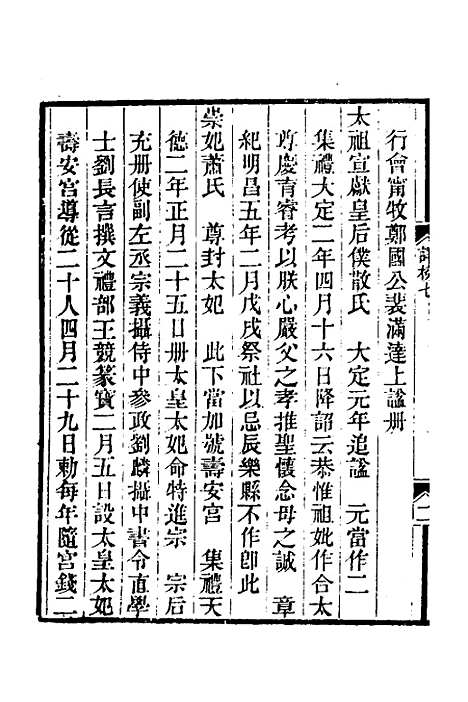 行會甯牧鄭國公裴滿達上諡册
太祖宣獻皇后僕散氏　大定元年追諡　元當作二
集禮大定二年四月十六日降詔云恭惟祖妣作合太
尊慶育睿考以朕心嚴父之孝推聖懷念母之誠　章
紀明昌五年二月戊戌祭社以忌辰樂縣不作卽此
崇妃蕭氏　尊封太妃　此下當加號壽安宮　集禮天
德二年正月二十五日册太皇太妃命特進宗　宗后
充册使副左丞宗義攝侍中參政劉麟攝中書令直學
士劉長言撰文禮部王競篆寶二月五日設太皇太妃
壽安宮導從二十人四月二十九日勅每年隨宮錢二
詳校七
二